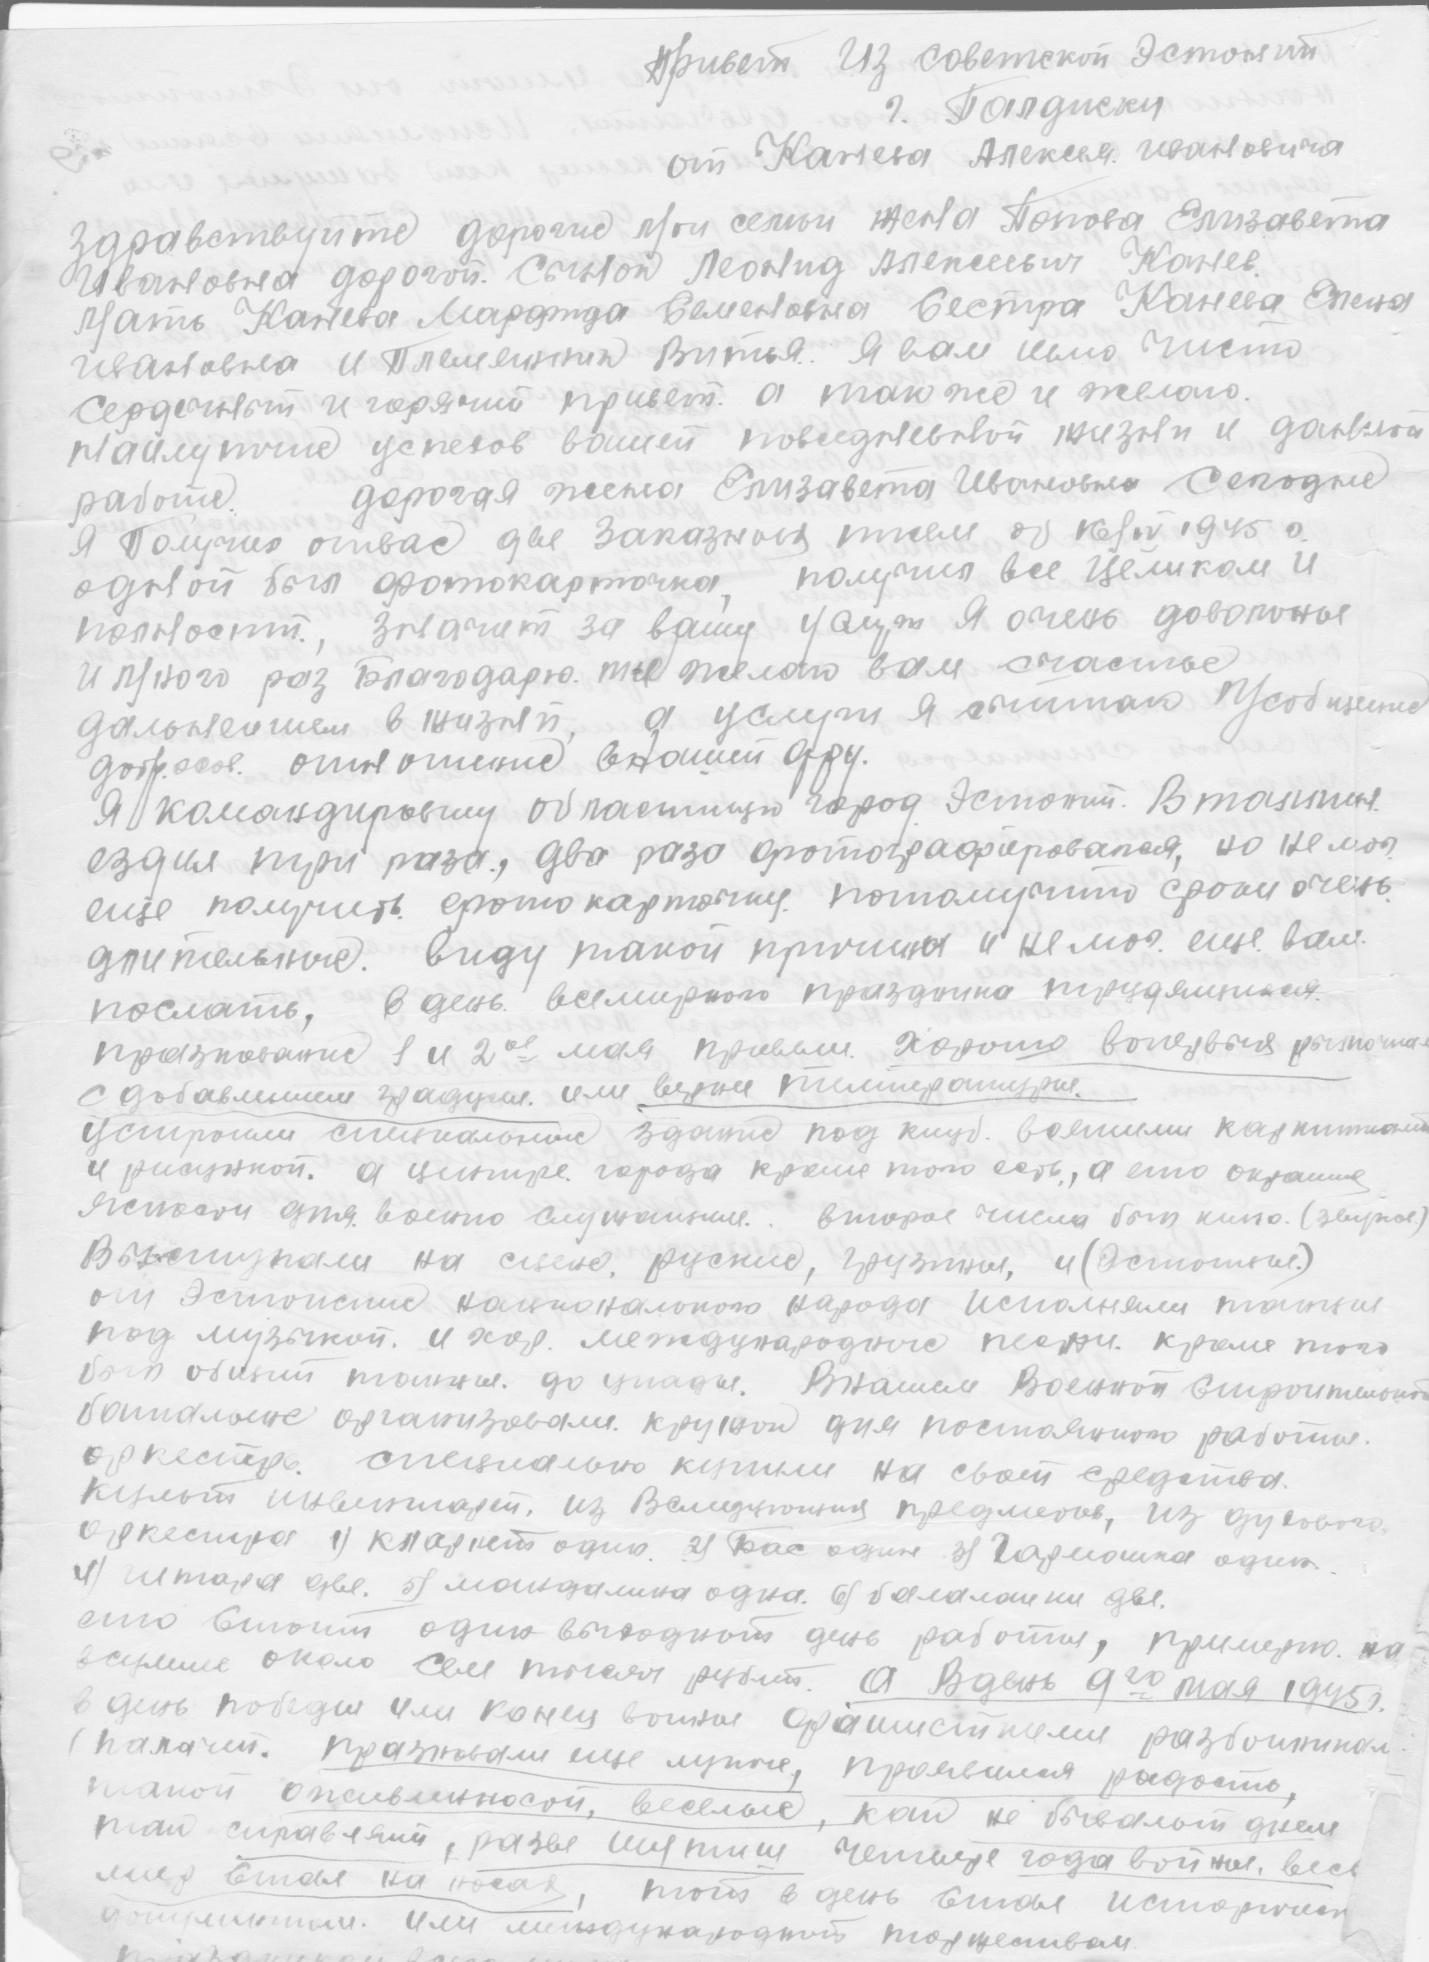 Привет Из советской Эстонии
г. Палдиски
от Канева Алексея. ивановича
Здравствуйте дорогие мои семьи жена Попова Елизавета
Ивановна дорогой. Сынок Леонид Алексеевич Канев.
Мать Канева Марфида Семеновна Сестра Канева Елена
ивановна и Племянник Витья. Я вам шлю Чисто
Сердечный и горячий привет. а так же и желаю.
Найлучшие успехов вашей повседневной жизни и данной
работе. дорогая жена Елизавета Ивановна Сегодне
я Получил отвас две Заказных писем от 1945 г.
одной был фотокарточка, получил все Целиком И
полностит, значит за вашу услуги Я очень довольные
и Много раз Благодарю. желаю вам счастье
дальнейшем в жизней, а услуги я считаю
отношение внашей
Я командировку областную город Эстоний. В таллин.
ездил три раза, два раза фотографировался, но не мог.
еще получить фотокарточку. потомучто сроки очень.
длительные. Виду такой причины и не мог. еще. вам.
послать, в день всемирного праздника трудящихся.
празнование 1 и 2ое мая провели. Хорошо вопервых
с добавлением градусы. или верхи температуры.
Устроили специальные здание под клуб. картинами
и рисункой. а центре. города кроме того есть, а его
для военно служащие. второе числа был кино. (звуков.)
Выступали на сцене. руские, грузины, и (Эстонцы.)
от Эстонские национального народа исполняли танцы
под музыкой. и хор. международные песни. кроме того
был общий танцы. до упады. Внашем Военной Строительной
батальоне организовали. кружок для постоянного работы.
оркестр. специально купили на свой средства.
культ инвентарей. из Вследующих предметов, из духового.
оркестра 1) кларнет один. 2) Бас один 3) Гармошка один.
4) гитара две. 5) мандалина одна. 6) балалайки две.
это Стоит один выходной день работы, примерно. на
всумме около Сем тысяч рублей. А Вдень 9го мая 1945 г.
в день победы или Конец войны фашисткими разбойникам.
(палачей. празновали еще лучше, проявился радость,
такой оживленносой, веселые, как не бывалый днем
так справляли, разве четыре года войны. весь
мир Стоял на ногах, в день Стал историческ
документом. или международной торжеством